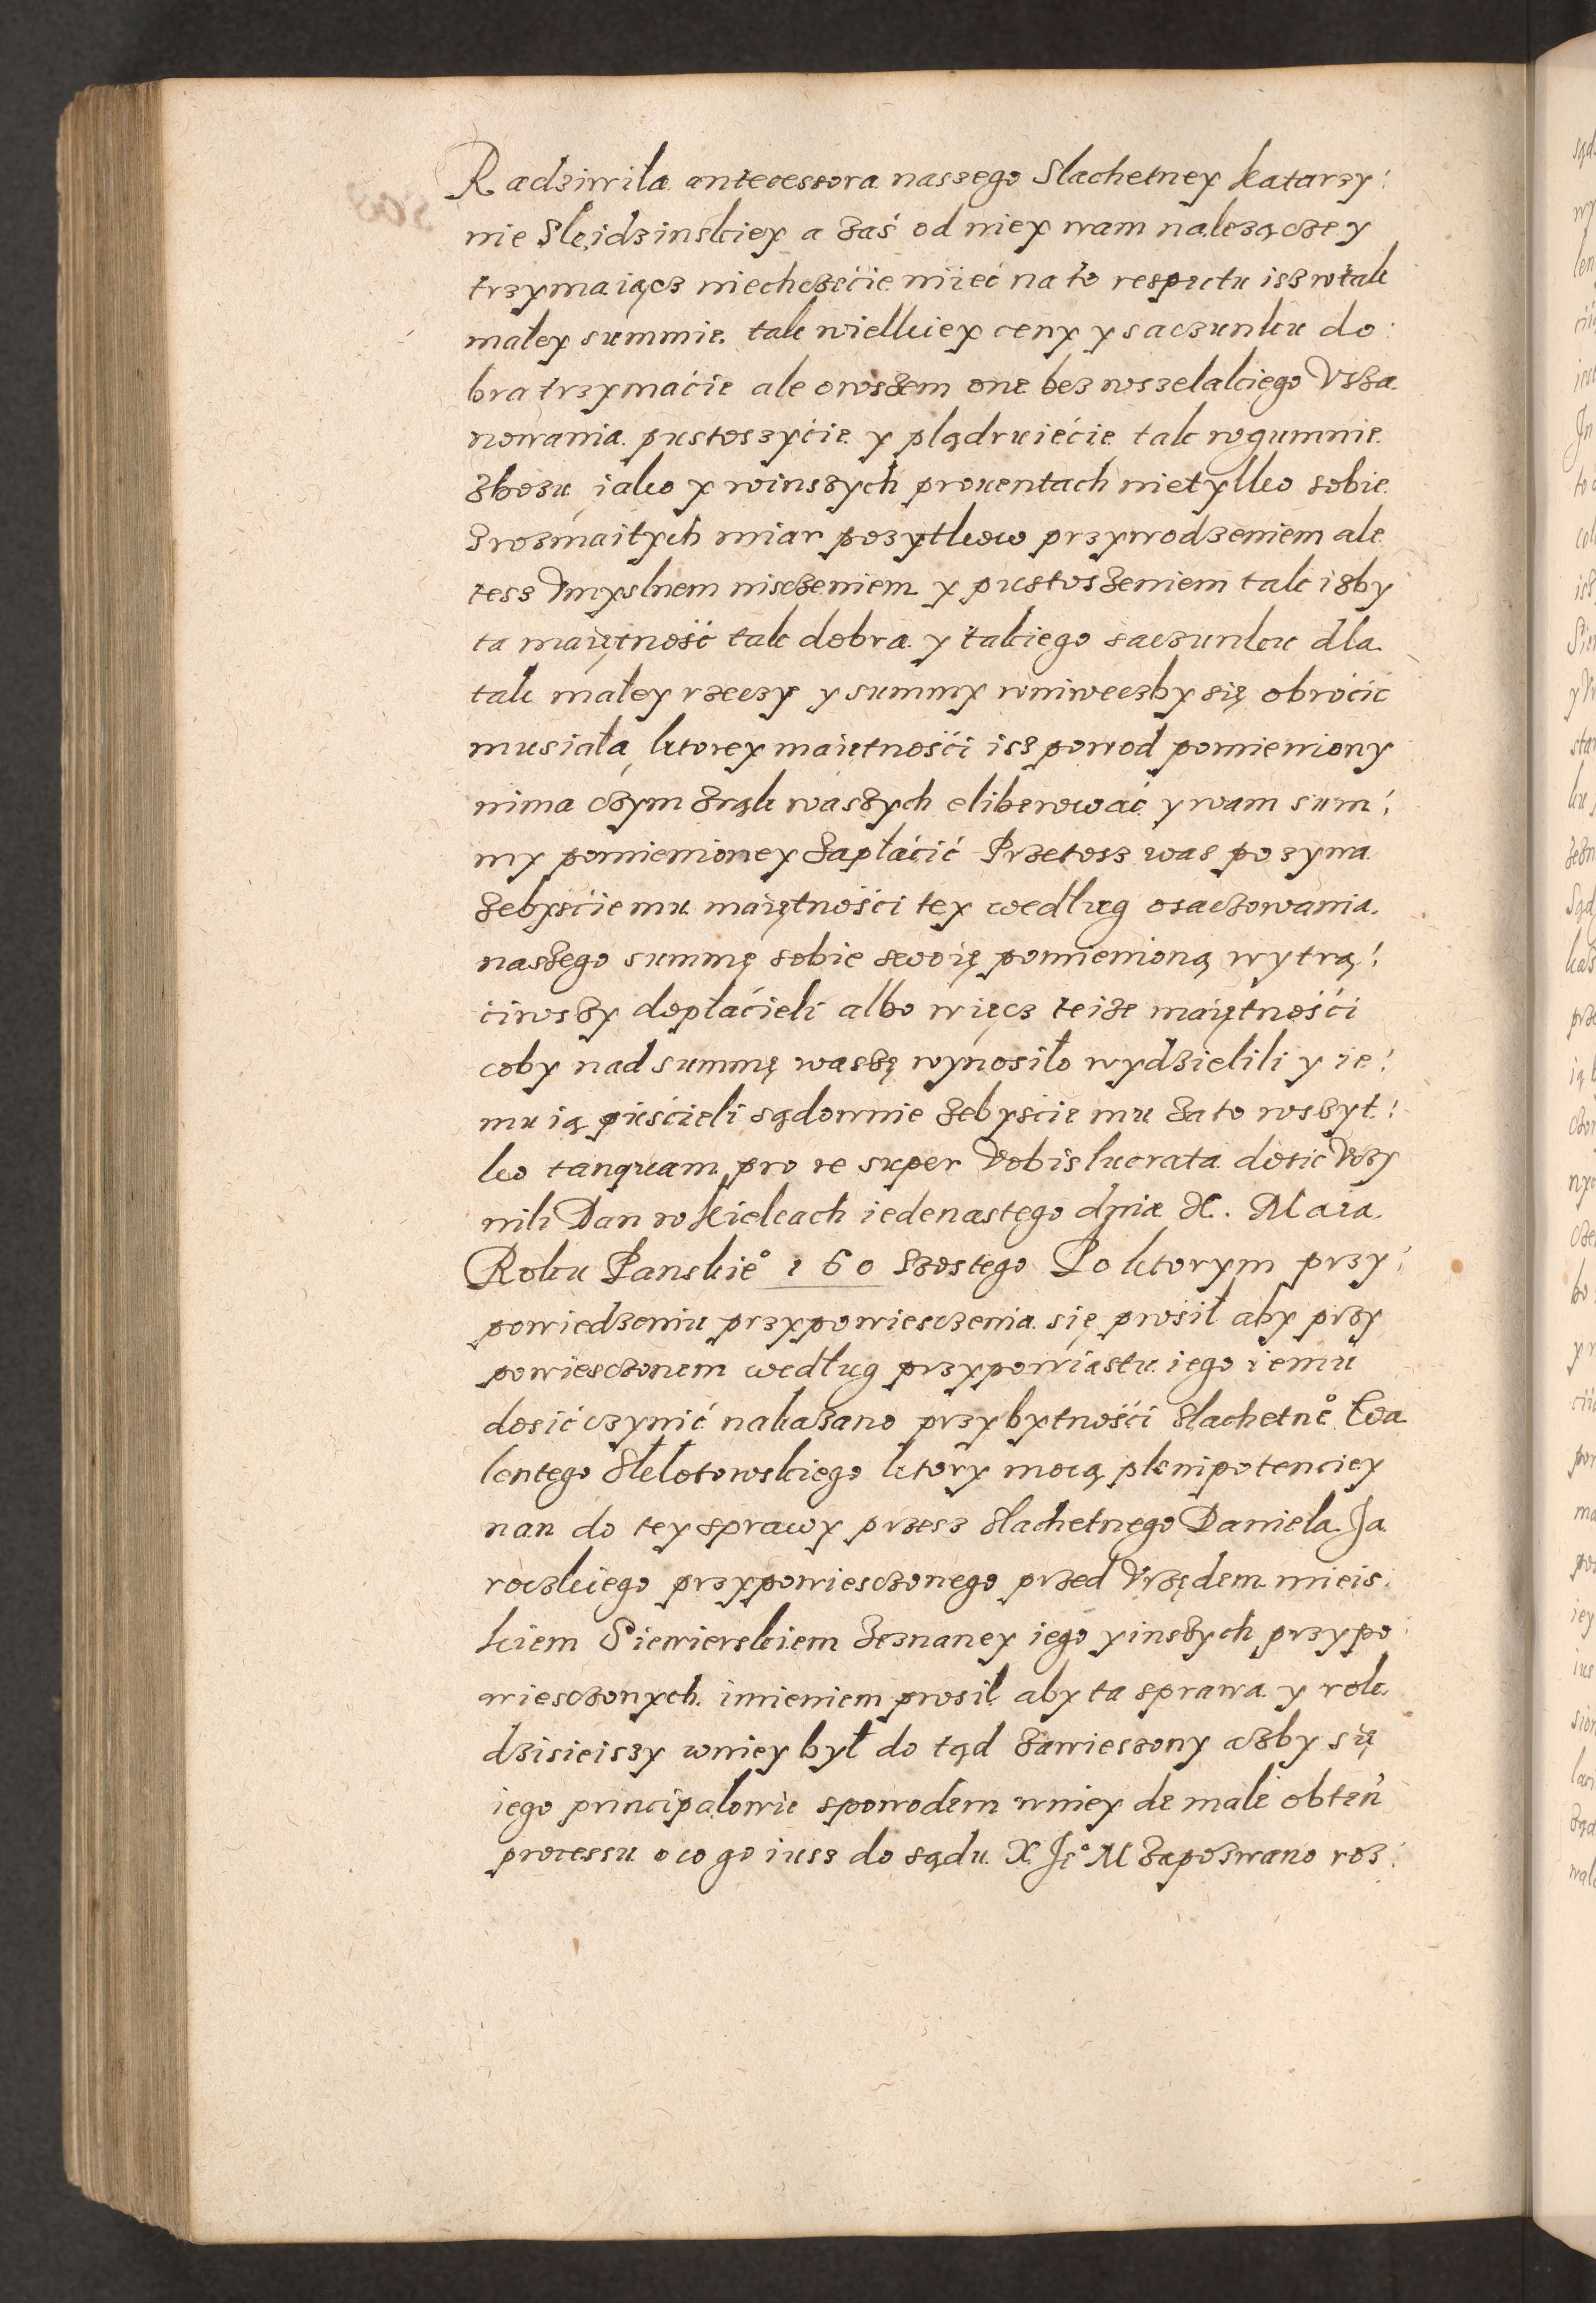 Radziwiła antecessora naszego Slachetney Katarzy:
nie Slęidzinskiey a zaś od niey wam należącze y
trzymaiącz niechczećie miieć na to respectu isz w tak
małey summie tak wielkiey ceny y saczunku do:
bra trzymaćie ale owszem one bez wszelakiego Vsza
nowania pustoszyćie y plądruiećie tak w gumnie
zbożu iako y winszych prouentach nie tylko sobie
z rozmaitych miar pozytkow przywodzeniem ale
tesz Vmyslnem niszczeniem y pustoszeniem tak izby
ta maiętność tak dobra y takiego saczunku dla
tak małey rzeczy y summy wniweczby się obroćić
musiała, ktorey maiętnośći isz powod pomieniony
nima czym z rąk waszych eliberować y wam sum:
my pomienioney zapłaćić Przetosz was pozywa
zebysćie mu maiętnośći tey według osaczowania
naszego summę sobie swoię pomienioną wytrą:
ćiwszy dopłaćieli albo więcz teize maiętnośći
coby nad summę waszę wynosiło wydzielili y ie:
mu ią puśćieli sądownie zebyśćie mu za to wszyt:
ko tanquam pro re super Vobis lucrata dosić Vczy
nili Dan w Kielcach iedenastego dnia X. Maia
Roku Panskie° 160 szostego Po ktorym przy:
powiedzeniu przypowiesczenia się prośił aby przy
powiesczonem według przypowiastu iego iemu
dosić czynić nakazano przy bytnośći slachetne° Wa
lentego Słełotowskiego ktory mocą plenipotenciey
nan do tey sprawy przesz slachetnego Daniela Ja
roczkiego przypowiesczonego przed Vrzędem mieis:
kiem Siewierskiem zeznaney iego y inszych przypo
wiesczonych imieniem prosił aby ta sprawa y rok
dzisieiszy w niey był do tąd zawieszony aczby się
iego principalowie s powodem w niey de male obten
processu o co go iusz do sądu X. Je° M zapozwano roz: